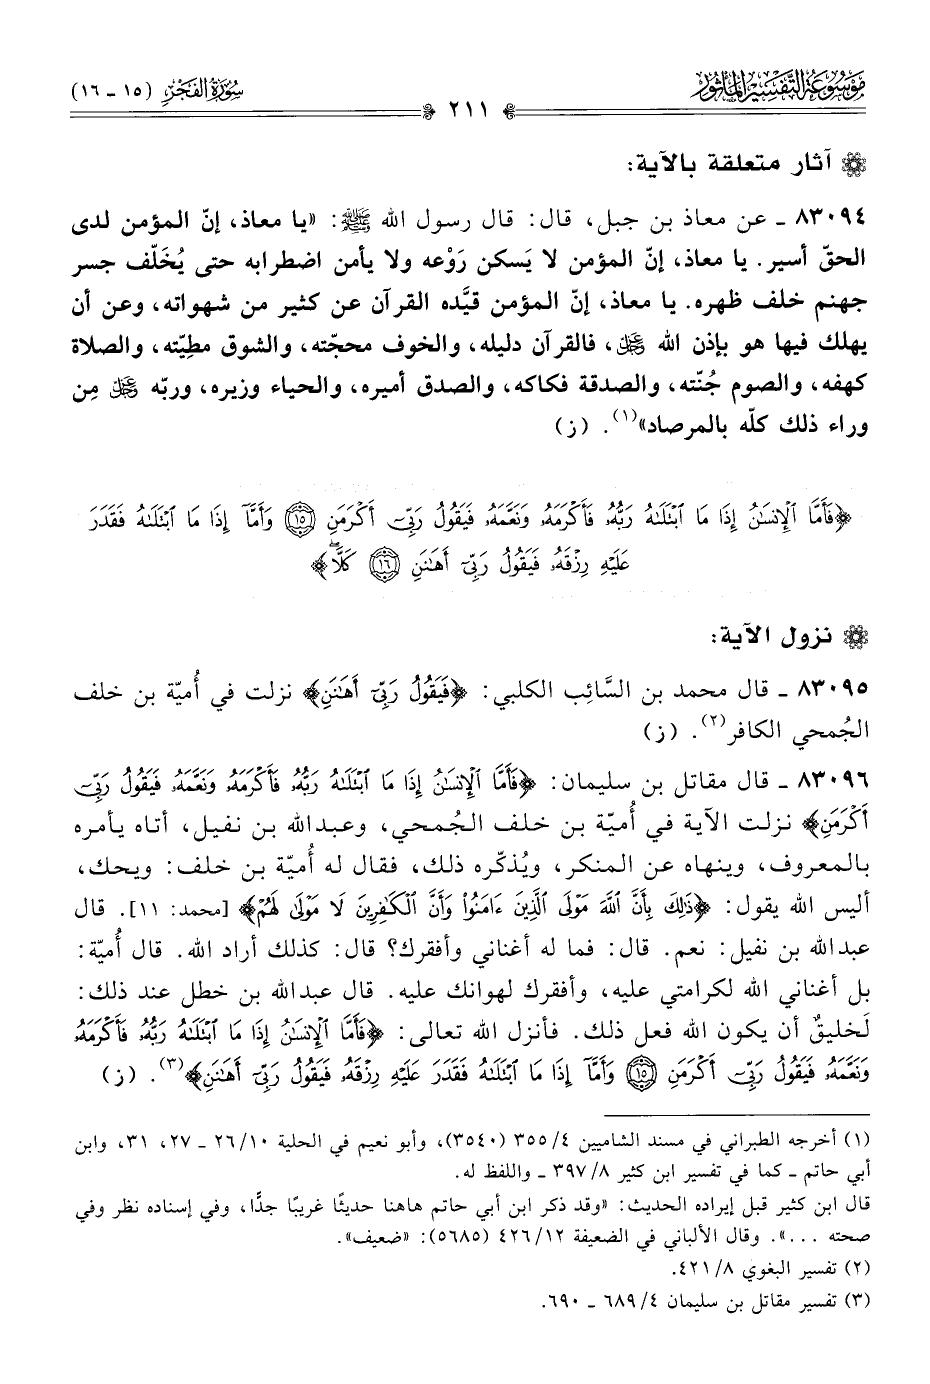 موسوعة التفسير المأثور
سورة الفجر (١٥ - ١٦)
٢١١
آثار متعلقة بالآية:
٨٣٠٩٤ ـ عن معاذ بن جبل، قال: قال رسول الله ﷺ: «يا معاذ، إنّ المؤمن لدى
الحقّ أسير. يا معاذ، إنّ المؤمن لا يَسكن رَوْعه ولا يأمن اضطرابه حتى يُخَلّف جسر
جهنم خلف ظهره. يا معاذ، إنّ المؤمن قيَّده القرآن عن كثير من شهواته، وعن أن
يهلك فيها هو بإذن الله ﷻ، فالقرآن دليله، والخوف محجّته، والشوق مطِيّته، والصلاة
كهفه، والصوم جُنّته، والصدقة فكاكه، والصدق أميره، والحياء وزيره، وربّه ﷻ مِن
وراء ذلك كلّه بالمرصاد»(١). (ز)
﴿فَأَمَّا ٱلْإِنسَٰنُ إِذَا مَا ٱبْتَلَىٰهُ رَبُّهُۥ فَأَكْرَمَهُۥ وَنَعَّمَهُۥ فَيَقُولُ رَبِّىٓ أَكْرَمَنِ ١٥ وَأَمَّآ إِذَا مَا ٱبْتَلَىٰهُ فَقَدَرَ
عَلَيْهِ رِزْقَهُۥ فَيَقُولُ رَبِّىٓ أَهَٰنَنِ ١٦ كَلَّاۖ﴾
نزول الآية:
٨٣٠٩٥ ـ قال محمد بن السَّائِب الكلبي: ﴿فَيَقُولُ رَبِّىٓ أَهَٰنَنِ﴾ نزلت في أُميّة بن خلف
الجُمحي الكافر(٢). (ز)
٨٣٠٩٦ ـ قال مقاتل بن سليمان: ﴿فَأَمَّا ٱلْإِنسَٰنُ إِذَا مَا ٱبْتَلَىٰهُ رَبُّهُۥ فَأَكْرَمَهُۥ وَنَعَّمَهُۥ فَيَقُولُ رَبِّىٓ
أَكْرَمَنِ﴾ نزلت الآية في أُميّة بن خلف الجُمحي، وعبدالله بن نفيل، أتاه يأمره
بالمعروف، وينهاه عن المنكر، ويُذكّره ذلك، فقال له أُميّة بن خلف: ويحك،
أليس الله يقول: ﴿ذَٰلِكَ بِأَنَّ ٱللَّهَ مَوْلَى ٱلَّذِينَ ءَامَنُوا۟ وَأَنَّ ٱلْكَٰفِرِينَ لَا مَوْلَىٰ لَهُمْ﴾ [محمد: ١١]. قال
عبدالله بن نفيل: نعم. قال: فما له أغناني وأفقرك؟ قال: كذلك أراد الله. قال أُميّة:
بل أغناني الله لكرامتي عليه، وأفقرك لهوانك عليه. قال عبدالله بن خطل عند ذلك:
لَخليقٌ أن يكون الله فعل ذلك. فأنزل الله تعالى: ﴿فَأَمَّا ٱلْإِنسَٰنُ إِذَا مَا ٱبْتَلَىٰهُ رَبُّهُۥ فَأَكْرَمَهُۥ
وَنَعَّمَهُۥ فَيَقُولُ رَبِّىٓ أَكْرَمَنِ ١٥ وَأَمَّآ إِذَا مَا ٱبْتَلَىٰهُ فَقَدَرَ عَلَيْهِ رِزْقَهُۥ فَيَقُولُ رَبِّىٓ أَهَٰنَنِ﴾(٣). (ز)
(١) أخرجه الطبراني في مسند الشاميين ٤/ ٣٥٥ (٣٥٤٠)، وأبو نعيم في الحلية ١٠/ ٢٦ ـ ٢٧، ٣١، وابن
أبي حاتم ـ كما في تفسير ابن كثير ٨/ ٣٩٧ ـ واللفظ له.
قال ابن كثير قبل إيراده الحديث: «وقد ذكر ابن أبي حاتم هاهنا حديثًا غريبًا جدًّا، وفي إسناده نظر وفي
صحته ...». وقال الألباني في الضعيفة ١٢/ ٤٢٦ (٥٦٨٥): «ضعيف».
(٢) تفسير البغوي ٨/ ٤٢١.
(٣) تفسير مقاتل بن سليمان ٤/ ٦٨٩ ـ ٦٩٠.